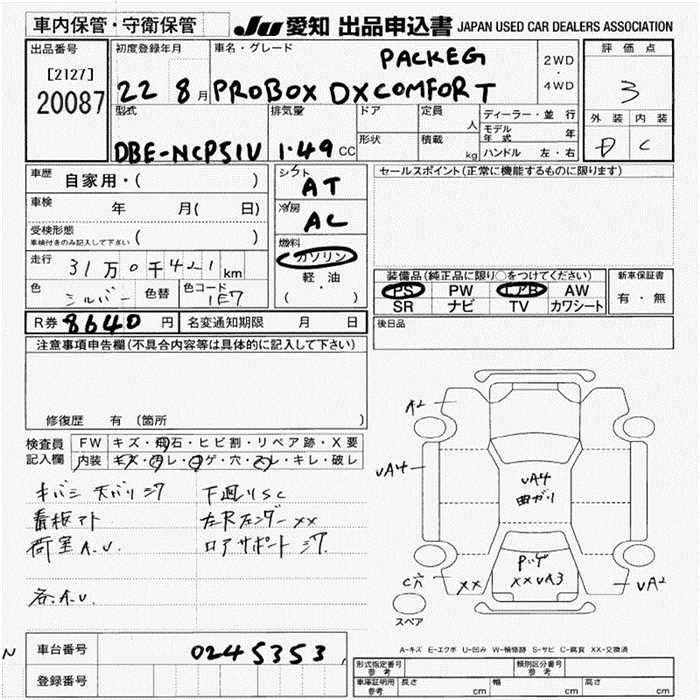 車内保管・守衛保管
JU 愛知 出品申込書 JAPAN USED CAR DEALERS ASSOCIATION
出品番号
[2127]
20087
初度登録年月
22 8月
車名・グレード
PACKEG
PROBOX DXCOMFORT
2WD
・
4WD
評価点
3
外装 内装
D C
型式
DBE-NCP51V
排気量
1.49 CC
ドア
定員
人
形状
積載
kg
ディーラー・並行
モデル年式 年
ハンドル 左・右
車歴 自家用・( )
車検 年 月( 日)
受検形態
車検付きのみ記入して下さい ( )
走行 31万0千421km
色 シルバー 色替 色コード 1E7
シフト
AT
冷房
AC
燃料
ガソリン
軽・油
( ・ )
セールスポイント(正常に機能するものに限ります)
装備品(純正品に限り○をつけてください)
PS PW エアB AW
SR ナビ TV カワシート
新車保証書
有・無
R券 8640円 名変通知期限 月 日
後日品
注意事項申告欄(不具合内容等は具体的に記入して下さい)
修復歴 有 (箇所 )
検査員記入欄
FW キズ・飛石・ヒビ割・リペア跡・X要
内装 キズ・汚レ・コゲ・穴・スレ・キレ・破レ
キバシ 天バリ シワ
下廻りSC
看板アト
左Rフェンダー××
荷室A.U.
ロアサポート シワ
各A.U.
A2
UA4
UA4
曲ガリ
C穴
××
Pゲ
××UA3
UA2
スペア
A-キズ E-エクボ U-凹み W-補修跡 S-サビ C-腐食 XX-交換済
N
車台番号 0245353
登録番号
形式指定番号
参考
類別区分番号
参考
車庫証明用
参考
長さ cm 幅 cm 高さ cm